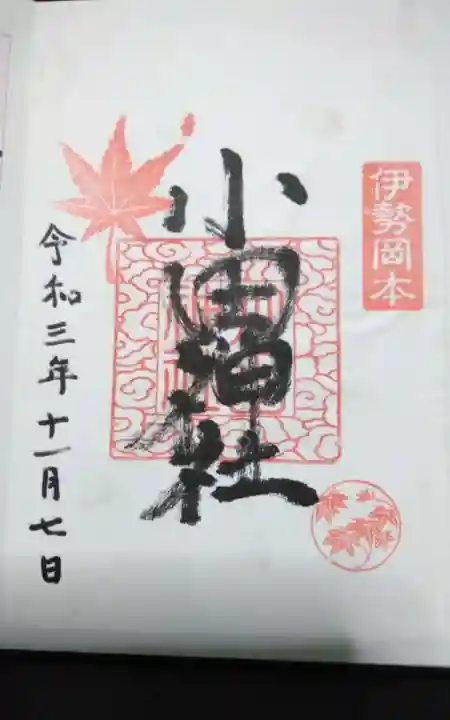 伊勢岡本
小田神社
令和三年十一月七日